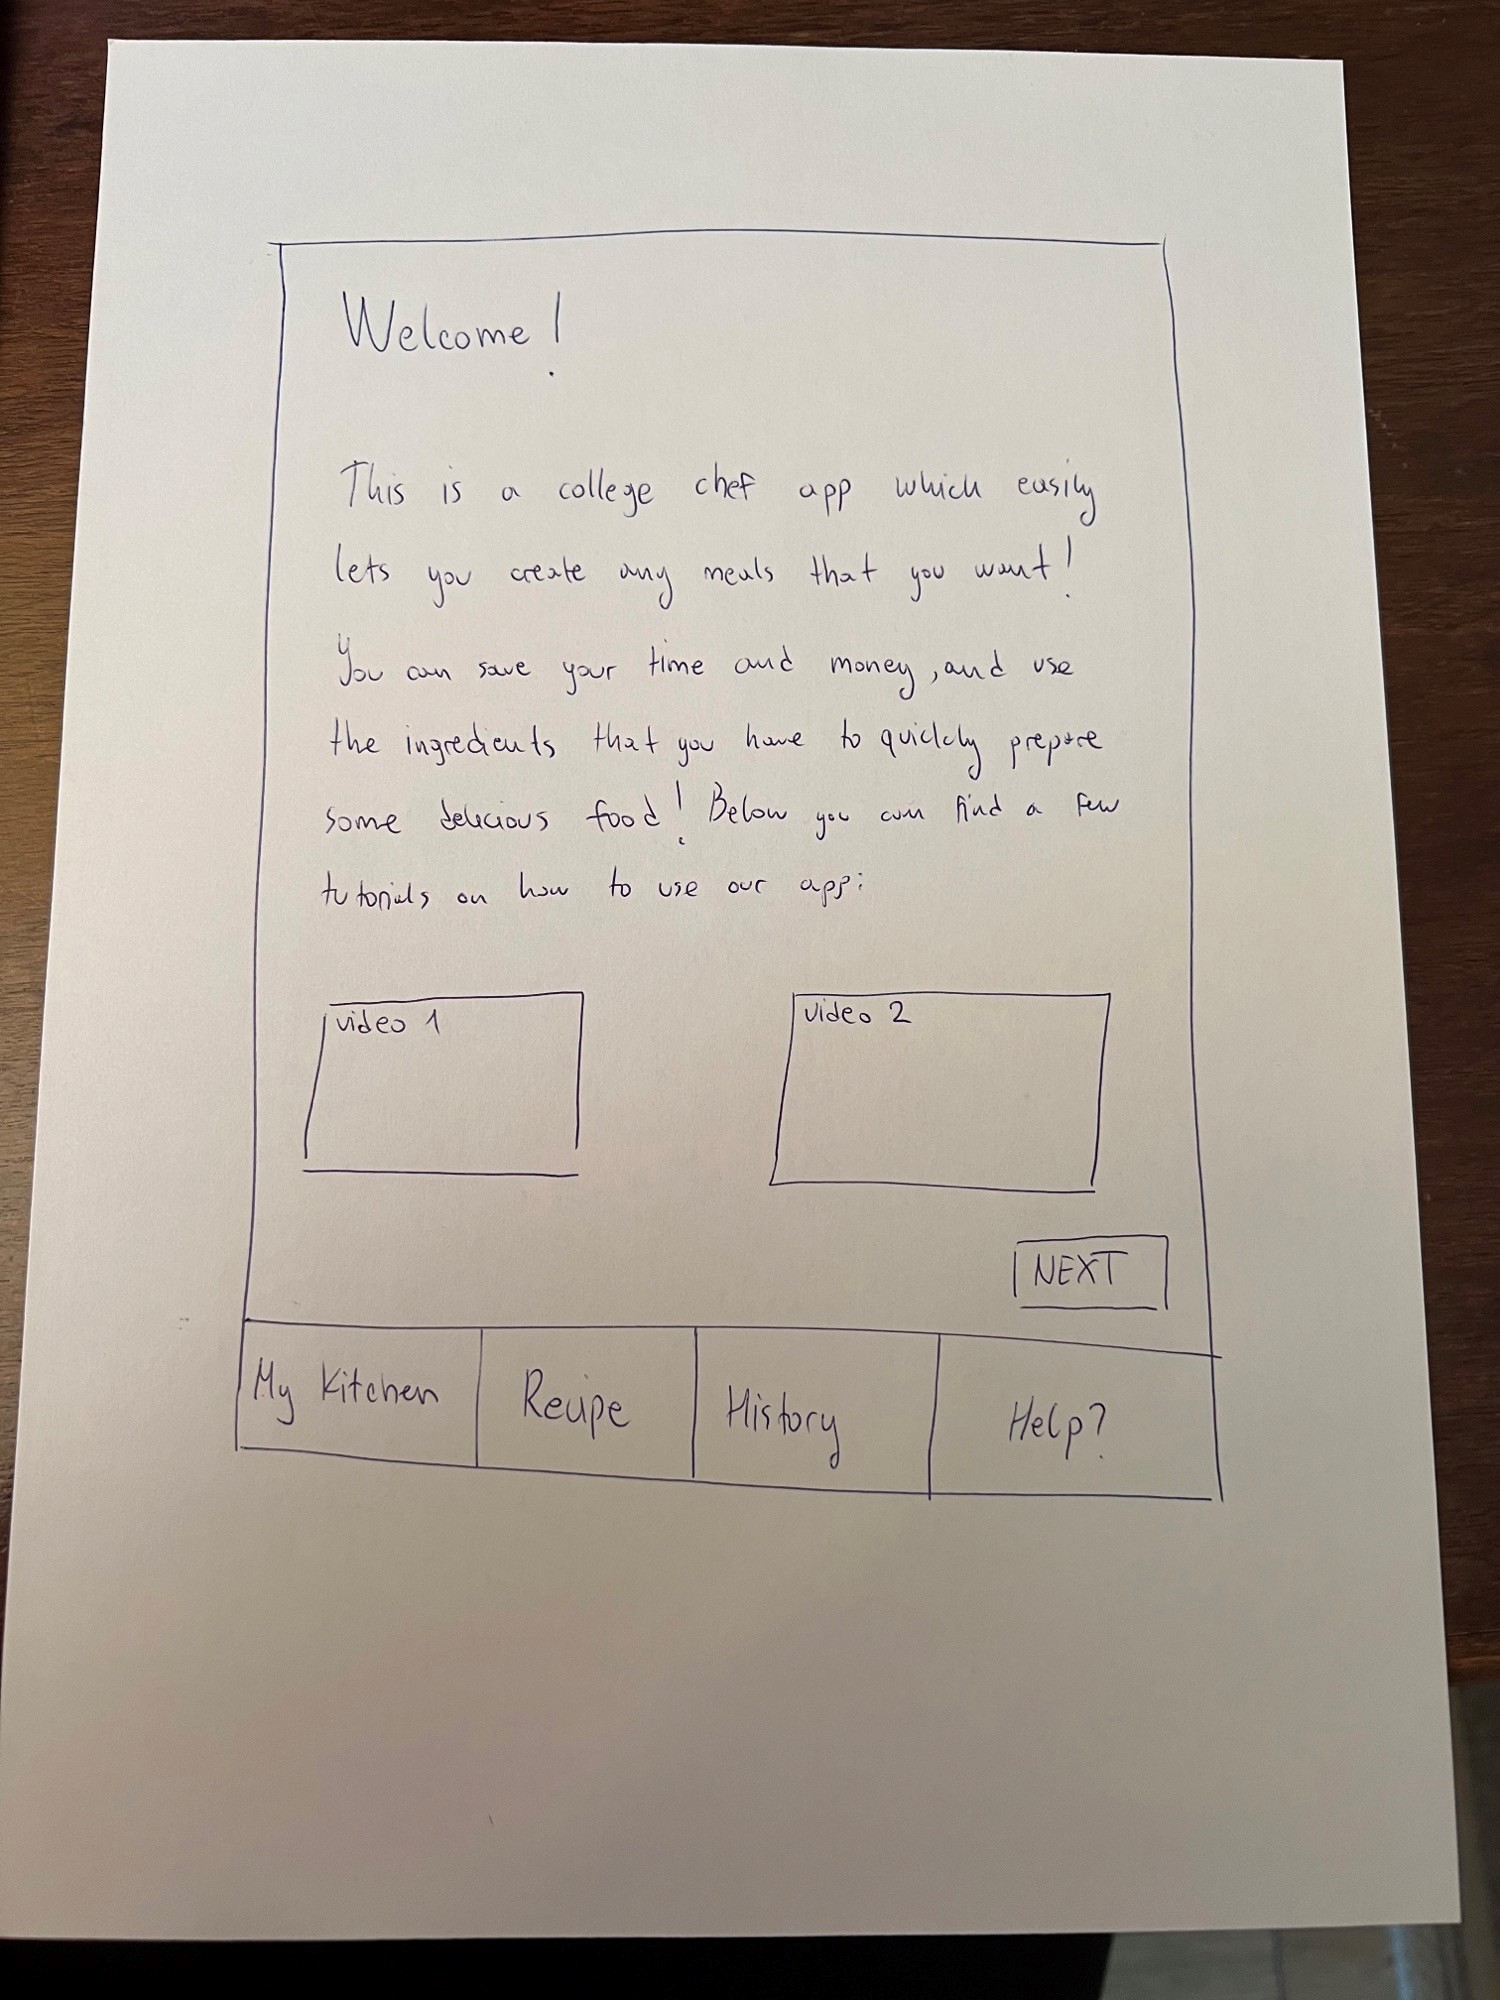 Welcome!
This is a college chef app which easily
lets you create any meals that you want!
You can save your time and money, and use
the ingredients that you have to quickly prepare
some delicious food! Below you can find a few
tutorials on how to use our app:
video 1 video 2
NEXT
My Kitchen Recipe History Help?